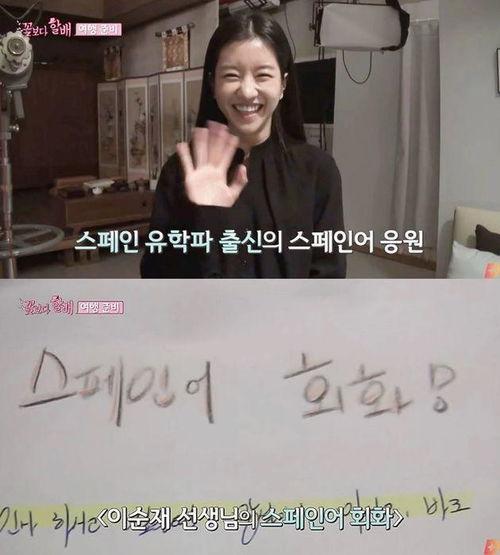 꽃보다 할배 여행 준비
스페인 유학파 출신의 스페인어 응원
꽃보다 할배 여행 준비
스페인어 회화
인사 하시고
바로
<이순재 선생님의 스페인어 회화>